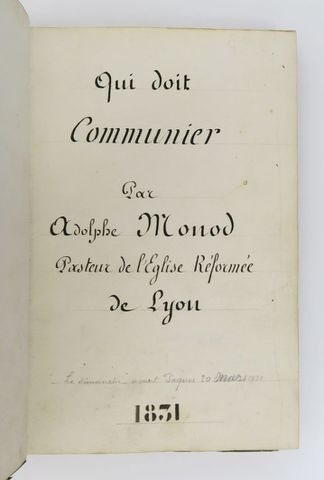 Qui doit
Communier
Par
Adolphe Monod
Pasteur de l'Eglise Réformée
de Lyon
Le dimanche avant Pâques 20 Mars
1831